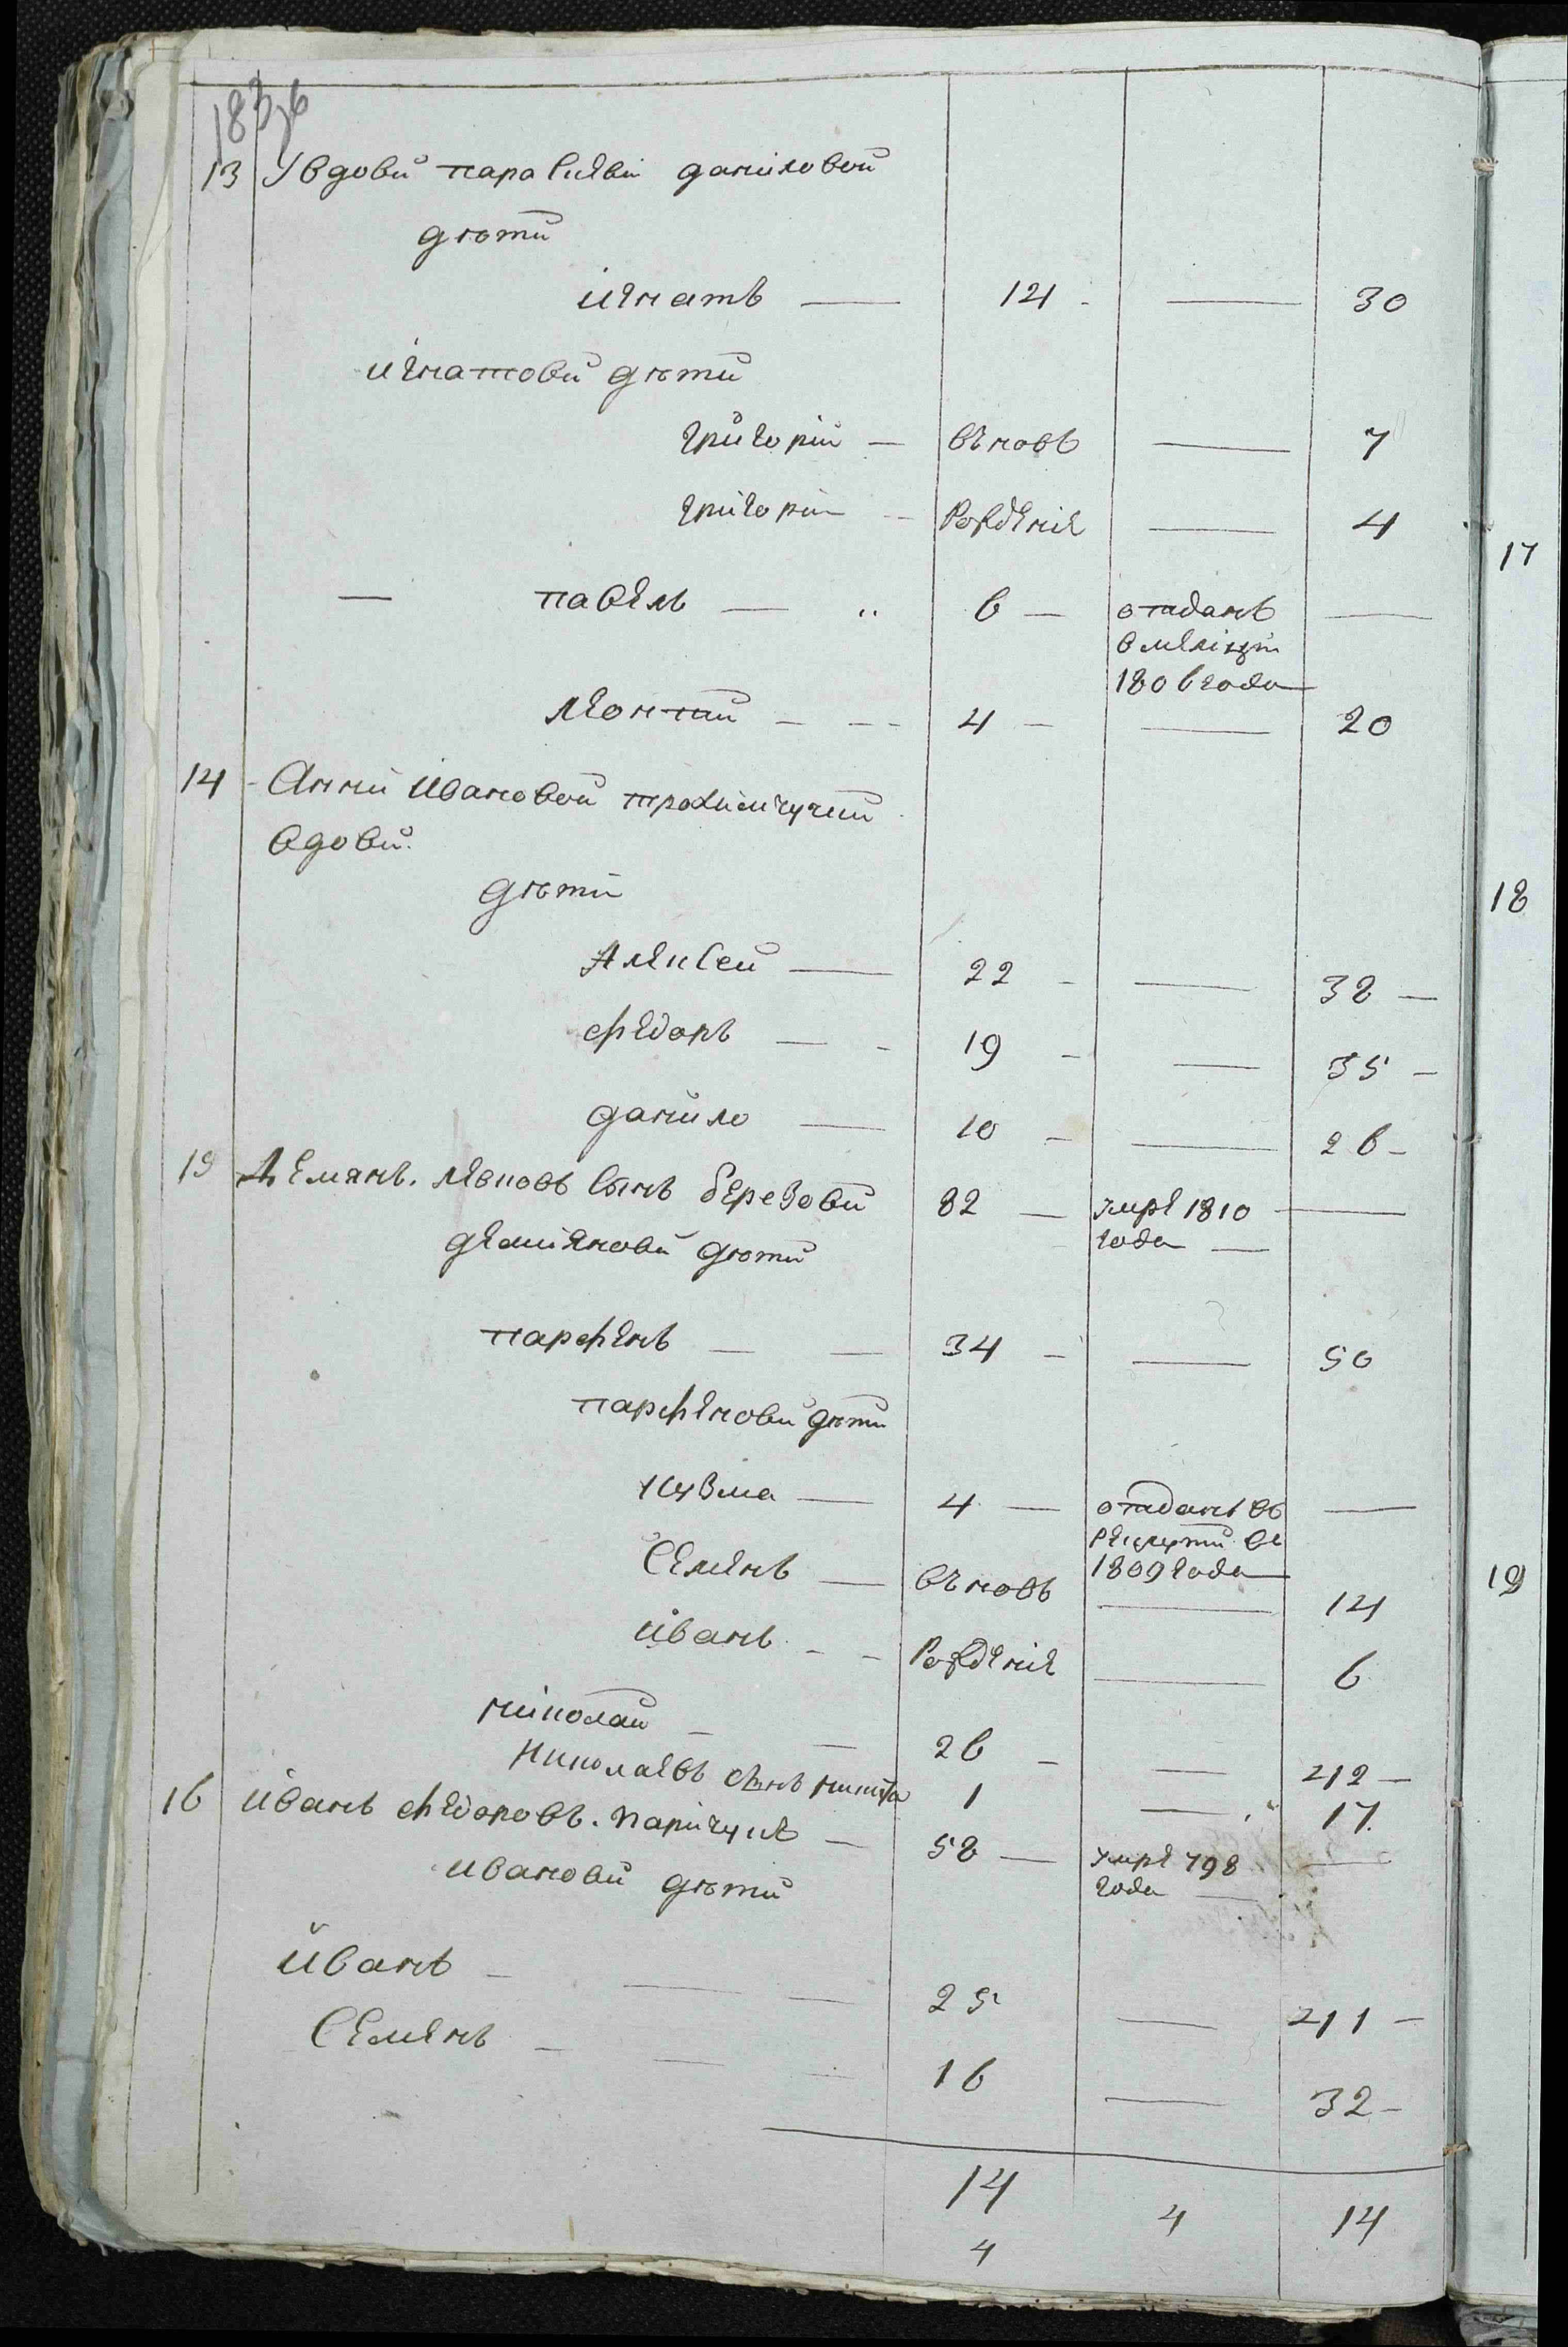 183об
13 Увдовы параскеви даниловой
дѣти
игнатъ — 14 — 30
игнатовы дѣти
григорій — въновъ — 7
григорій — рожденіе — 4
— павелъ — 6 — отданъ —
в милиціи
1806 года
леонтий — 4 — 20
14 Анны ивановой
вдовы
дѣти
Алексей — 22 — 38 —
федоръ — 19 — 35 —
данило — 10 — 26 —
15 Демянъ леновъ сынъ березовй 82 — умре 1810 —
года —
демияновы дѣти
парфенъ — 34 — 50
парфеновы дѣти
кузма — 4 — отданъ въ —
рекруты се
1809 года
Семенъ — въновъ — 14
иванъ — рожденіе — 6
николай — 26 — 42 —
николаевъ сынъ никита 1 — 17
16 иванъ федоровъ паричукъ — 58 — умре 798 —
года —
ивановы дѣти
иванъ — 25 — 41 —
Семенъ — 16 — 32 —
14 4 14
4
17
18
19